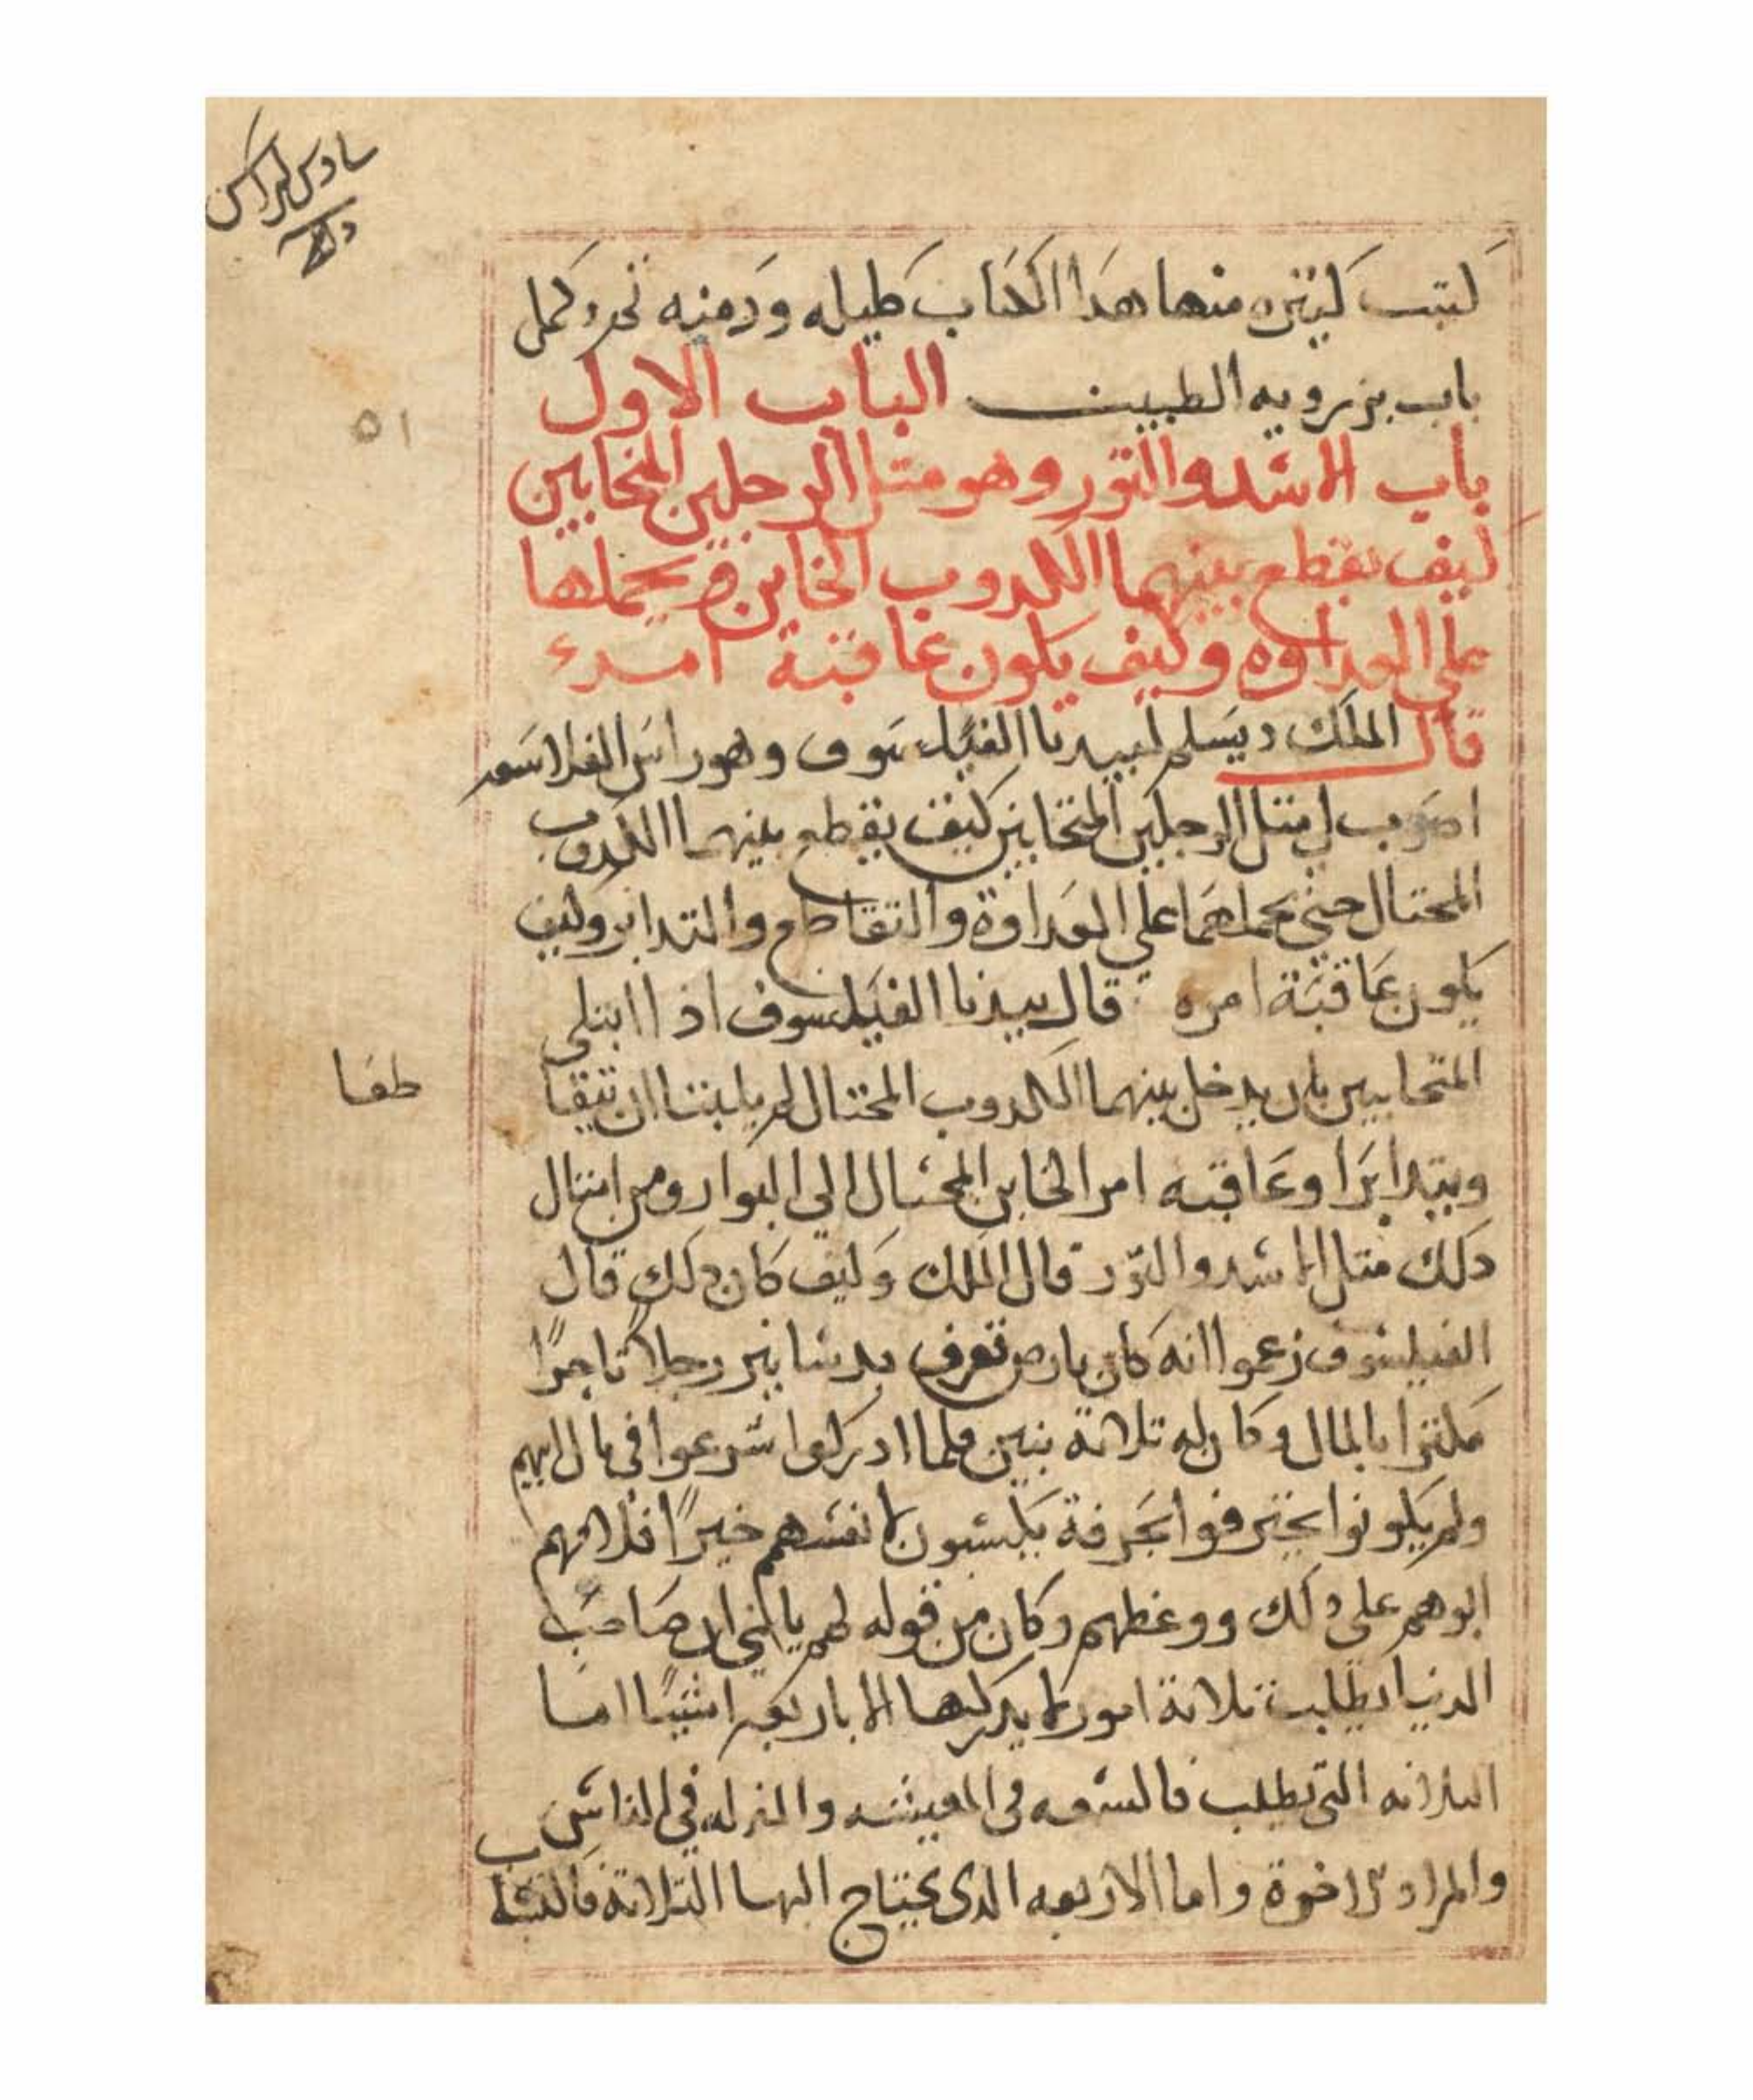 سادس كراس
كتب كتيره منها هدا الكتاب كليله ودمنه تم وكمل
باب بزرويه الطبيب الباب الاول
٥١
باب الاسد والتور وهو متل الرجلين المتحابين
كيف يقطع بينهما الكدوب الخاين ويحملها
على العداوه وكيف يكون عاقبة امره
قال الملك ديسلم لبيدبا الفيلسوف وهو راس الفلاسفه
اضرب لي متل الرجلين المتحابين كيف يقطع بينهما الكدوب
المحتال حتى يحملهما على العداوة والتقاطع والتدابر وكيف
يكون عاقبة امره قال بيدبا الفيلسوف اذا ابتلي
المتحابين بان يدخل بينهما الكدوب المحتال لم يلبتا ان تتقا
طعا
ويتدابرا وعاقبه امر الخاين المحتال الي البوار ومن امتال
دلك متل الاسد والتور قال الملك وكيف كان دلك قال
الفيلسوف زعموا انه كان بارض تعرف بدستابير رجلا تاجرًا
مكترا بالمال وكان له تلاتة بنين فلما ادركوا شرعوا في مال ابيهم
ولم يكونوا يحترفوا بحرفة يكسبون لانفسهم خيرًا فلامهم
ابوهم على دلك ووعظهم وكان من قوله لهم يا بني ان صاحب
الدنيا يطلب تلاتة امور لا يدركها الا باربعه اشيا اما
التلاته التي يطلب فالسعه في المعيشه والمنزله في الناس
والزاد للاخرة واما الاربعه الدى يحتاج اليها التلاتة فاكتساب